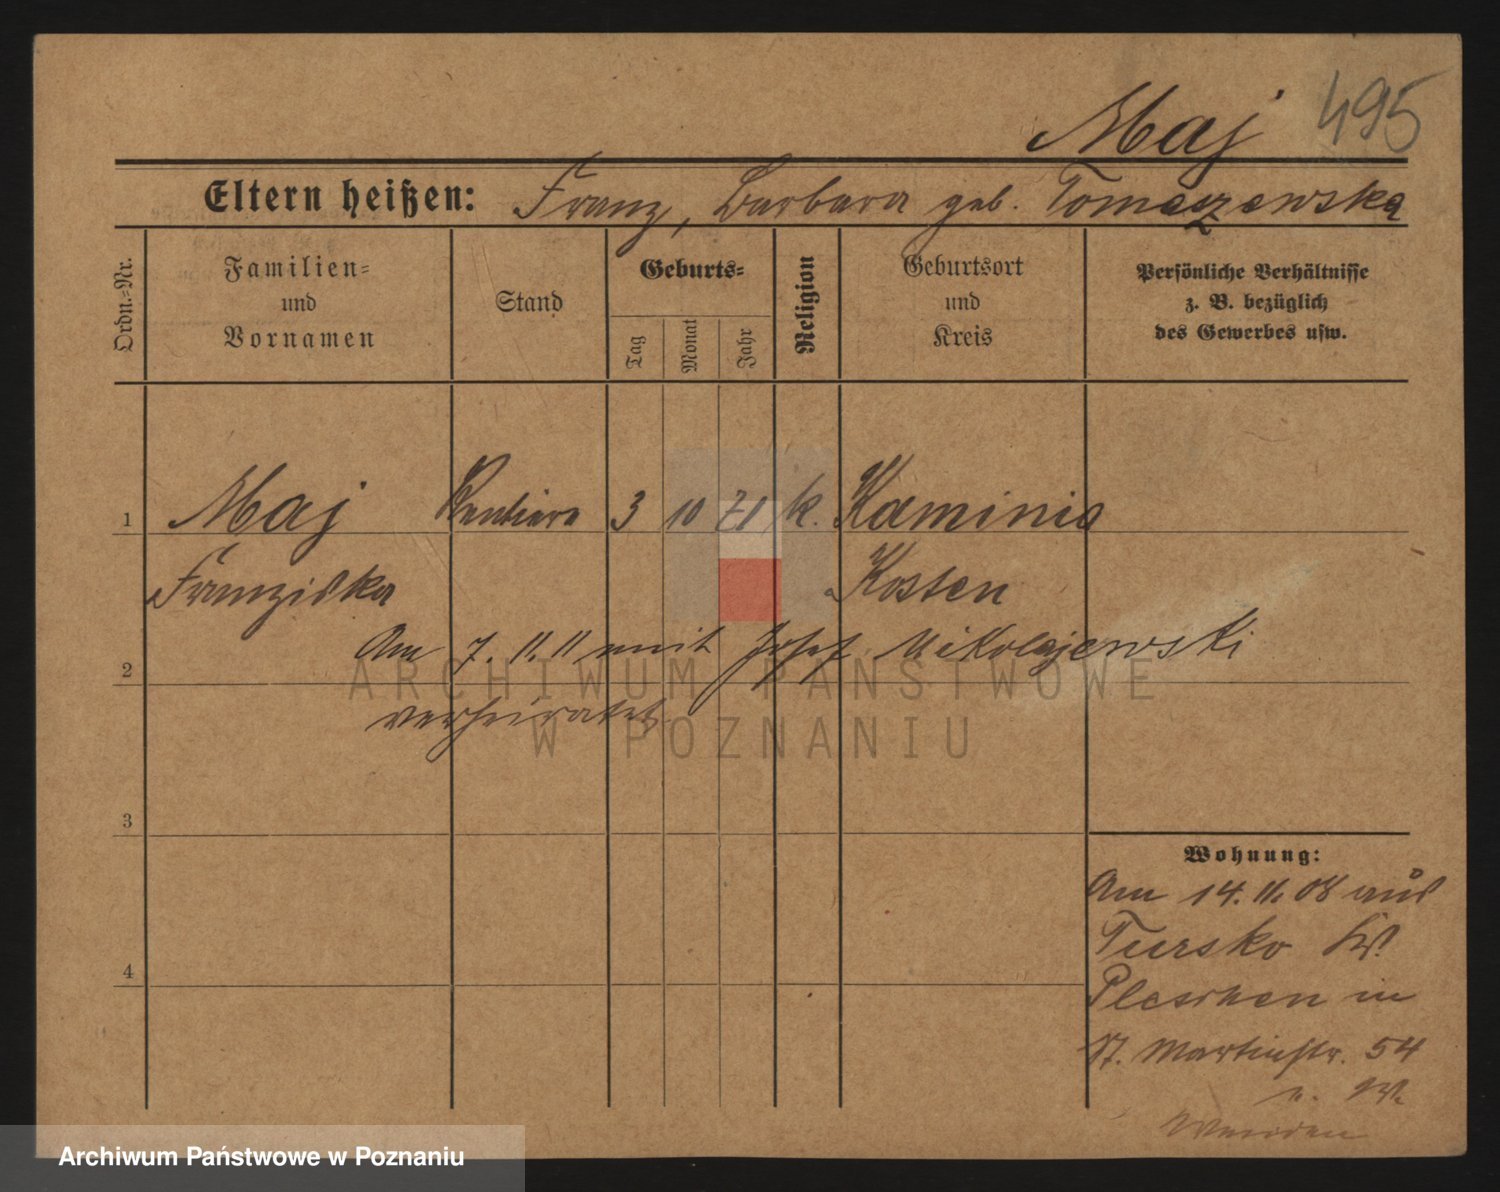 Maj 495
Eltern heißen: Franz, Barbara geb. Tomaszewska
Ordn.-Nr.
Familien-
und
Vornamen
Stand
Geburts-
Tag
Monat
Jahr
Religion
Geburtsort
und
Kreis
Persönliche Verhältnisse
z. B. bezüglich
des Gewerbes usw.
1 Maj Rentiere 3 10 71 k. Kaminia
Franziska Kosten
Am 7. 11. 11 mit Josef Mikolajewski
2
verheiratet
ARCHIWUM PAŃSTWOWE
W POZNANIU
3
Wohnung:
Am 14. 11. 08 aus
Tursko Krs.
4
Pleschen in
St. Martinstr. 54
Archiwum Państwowe w Poznaniu